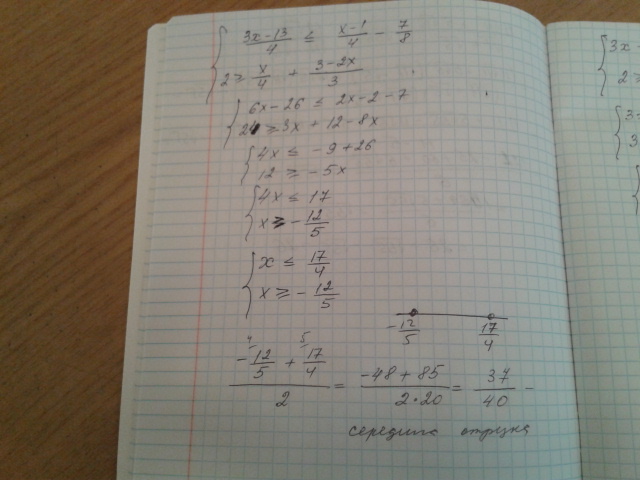 { (3x-13)/4 ≤ (x-1)/4 - 7/8
2 ≥ x/4 + (3-2x)/3
{ 6x-26 ≤ 2x-2-7
24 ≥ 3x + 12-8x
{ 4x ≤ -9+26
12 ≥ -5x
{ 4x ≤ 17
x ≥ -12/5
{ x ≤ 17/4
x ≥ -12/5
-12/5 17/4
4 5
(-12/5 + 17/4)/2 = (-48+85)/(2·20) = 37/40 -
середина отрезка
{ 3x
2 ≥
{ 3
3
{